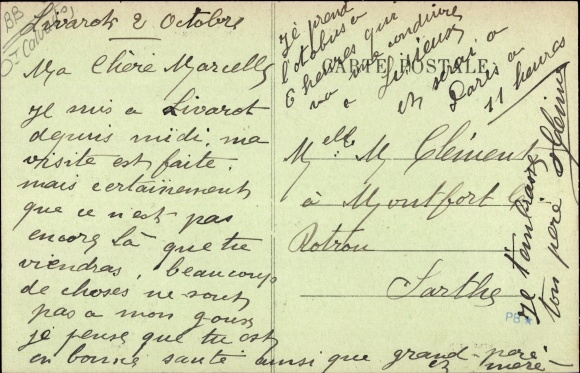 BB
Calvados
Livarot 2 Octobre
Ma Chère Marcelle
je suis a Livarot
depuis midi, ma
visite est faite,
mais certainement
que ce n'est pas
encore là que tu
viendras, beaucoup
de choses ne sont
pas a mon gout
je pense que tu est
en bonne santé ainsi que grand-père
et mère
je prend
l'otobus a
6 heures qui
va me conduire
a Lisieux
et serai a
Paris a
11 heures
CARTE POSTALE
Melle M Clément
à Montfort le
Rotrou
Sarthe
je t'embrasse
ton père
PB